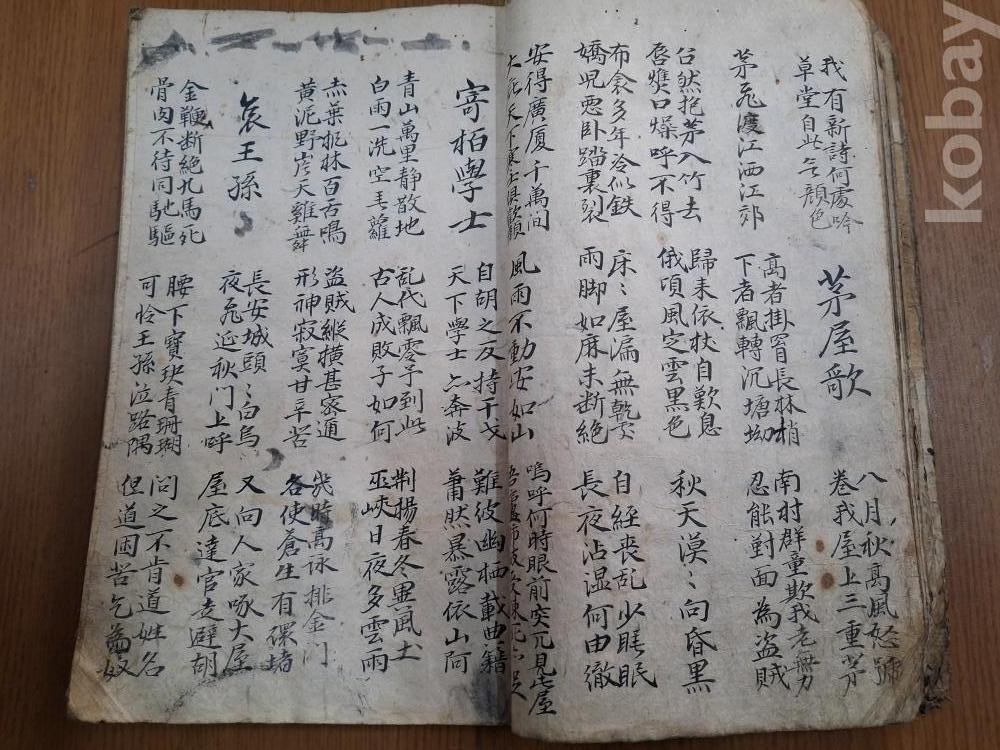 我有新詩何處吟
草堂自此无顔色
茅屋歌
八月秋高風怒號
卷我屋上三重茅
茅飛渡江洒江郊
高者掛罥長林梢
下者飄轉沉塘坳
南村群童欺我老無力
忍能對面為盗賊
公然抱茅入竹去
唇燋口燥呼不得
歸来依杖自歎息
俄頃風定雲黑色
秋天漠〻向昏黑
布衾多年冷似鉄
嬌児悪卧踏裏裂
床〻屋漏無乾處
雨脚如麻未断絶
自経喪乱少睡眠
長夜沾湿何由徹
安得廣厦千萬間
大庇天下寒士俱歡顔
風雨不動安如山
嗚呼何時眼前突兀見此屋
吾廬獨破受凍死亦足
寄栢學士
自胡之反持干戈
天下學士亦奔波
難彼幽栖載典籍
蕭然暴露依山阿
青山萬里静散地
白雨一洗空垂蘿
乱代飄零予到此
古人成敗子如何
荆揚春冬異風土
巫峡日夜多雲雨
赤葉楓林百舌鳴
黄泥野岸天雞舞
盗賊縱横甚密邇
形神寂寞甘辛苦
幾時髙詠排金门
各使蒼生有環堵
哀王孫
長安城頭〻白烏
夜飛延秋门上呼
又向人家啄大屋
屋底達官走避胡
金鞭断絶九馬死
骨肉不待同馳驅
腰下寶玦青珊瑚
可怜王孫泣路隅
問之不肯道姓名
但道困苦乞為奴
kobay